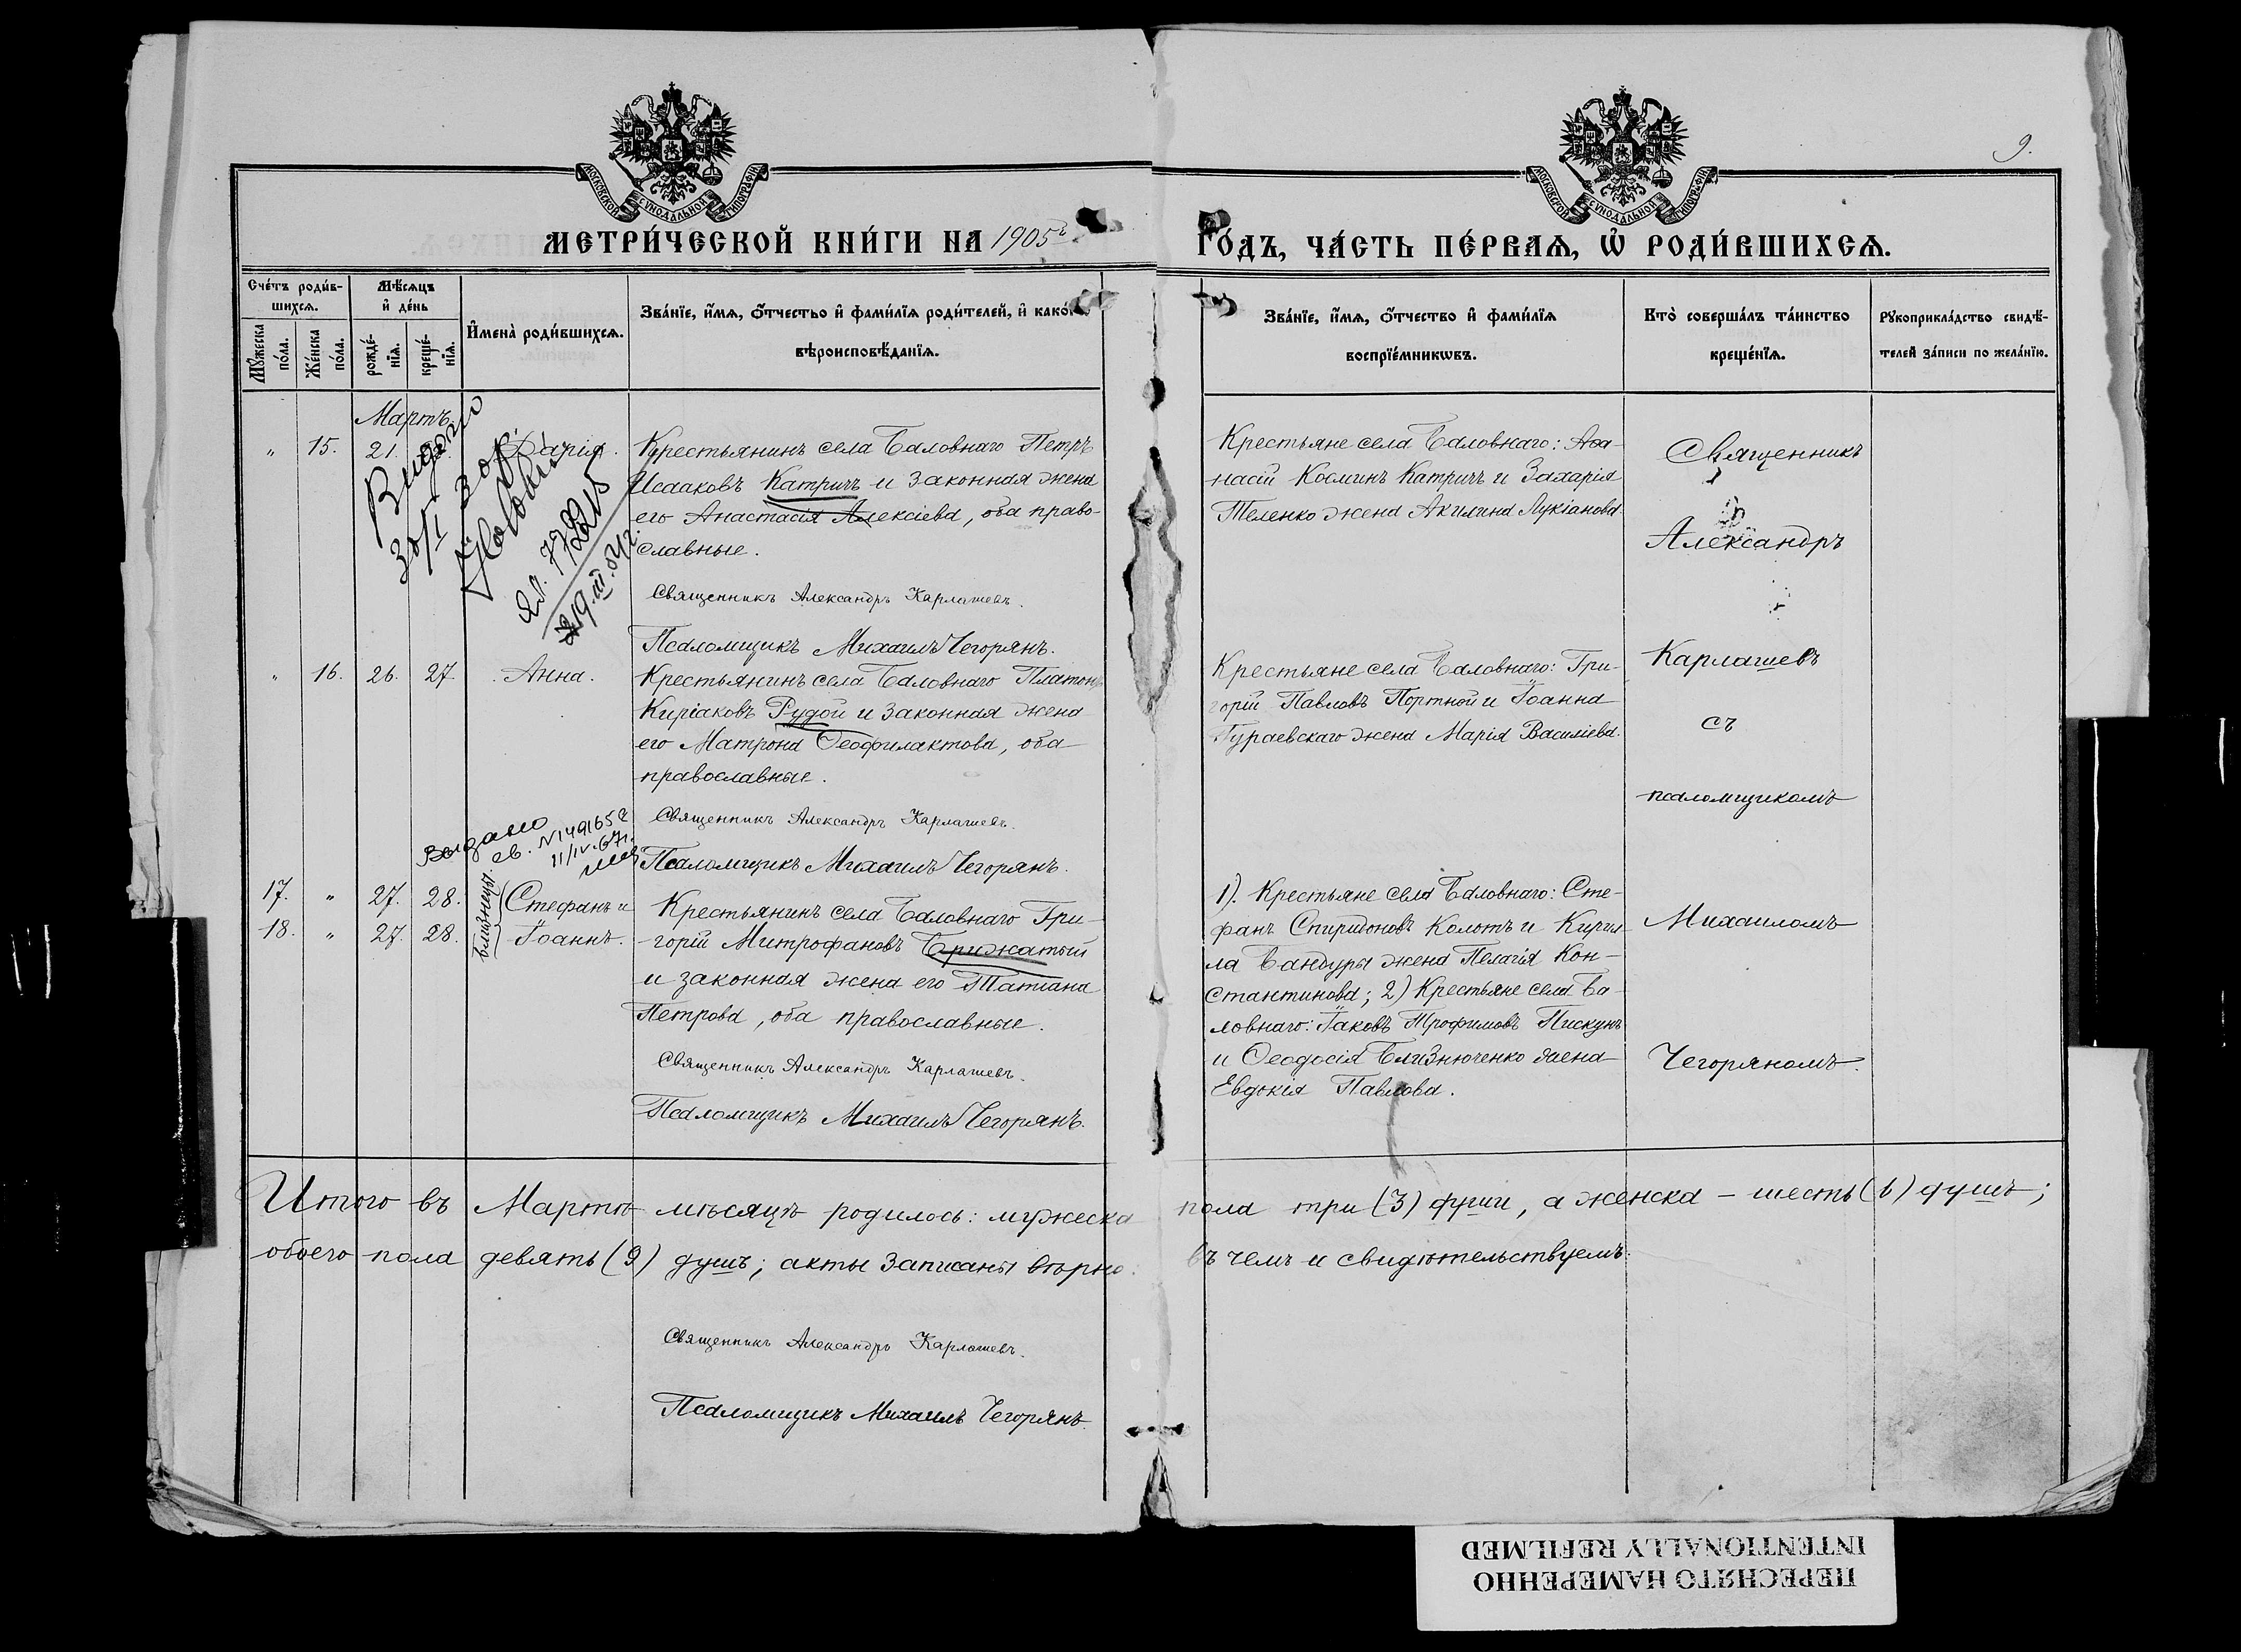 9.
МОСКОВСКОЙ СѴНОДАЛЬНОЙ ТИПОГРАФІИ
МОСКОВСКОЙ СѴНОДАЛЬНОЙ ТИПОГРАФІИ
МЕТРИ́ЧЕСКОЙ КНИ́ГИ НА 1905 г.
ГО́ДЪ, ЧА́СТЬ ПЕ́РВАѦ, Ѡ҆ РОДИ́ВШИХСѦ.
Сче́тъ роди́в-
шихсѧ.
Мꙋ́жеска по́ла.
Же́нска по́ла.
Мѣ́сѧцъ
и҆ де́нь
рожде́-
нїѧ.
креще́-
нїѧ.
И҆мена̀ роди́вшихсѧ.
Зва́нїе, и҆́мѧ, ѻ҆́тчество и҆ фами́лїѧ роди́телей, и҆ како́
вѣроисповѣ́данїѧ.
Зва́нїе, и҆́мѧ, ѻ҆́тчество и҆ фами́лїѧ
воспрїе́мникѡвъ.
Кто̀ соверша́лъ та́инство
креще́нїѧ.
Рꙋкоприкла́дство свидѣ́-
телей за́писи по жела́нїю.
Мартъ.
" 15. 21. Дарія.
Крестьянинъ села Баловнаго Петръ
Исааковъ Катричъ и законная жена
его Анастасія Алексіева, оба право-
славные.
Священникъ Александръ Карлашевъ.
Псаломщикъ Михаилъ Чегорянъ.
Крестьяне села Баловнаго: Аѳа-
насій Косминъ Катричъ и Захарія
Теленко жена Акилина Лукіанова
Выдано
30/I
19.III.
" 16. 26. 27. Анна.
Крестьянинъ села Баловнаго Платонъ
Киріаковъ Рудой и законная жена
его Матрона Ѳеофилактова, оба
православные.
Священникъ Александръ Карлашевъ.
Псаломщикъ Михаилъ Чегорянъ.
Крестьяне села Баловнаго: Гри-
горій Павловъ Портной и Іоанна
Гураевскаго жена Марія Василіева.
Выдано
св. №149165
11/IV.67г.
17. " 27. 28. Стефанъ и
18. " 27. 28. Іоаннъ.
близнецы.
Крестьянинъ села Баловнаго Гри-
горій Митрофановъ Брижатый
и законная жена его Татіана
Петрова, оба православные.
Священникъ Александръ Карлашевъ.
Псаломщикъ Михаилъ Чегорянъ.
1). Крестьяне села Баловнаго: Сте-
фанъ Спиридоновъ Колотъ и Кирил
ла Бандуры жена Пелагія Кон-
стантинова; 2) Крестьяне села Ба-
ловнаго: Іаковъ Трофимовъ Пискунъ
и Ѳеодосія Близнюченко жена
Евдокія Павлова.
Священникъ
Александръ
Карлашевъ
съ
псаломщикомъ
Михаиломъ
Чегоряномъ.
Итого въ Мартѣ мѣсяцѣ родилось: мужеска пола три (3) души, а женска – шесть (6) душъ;
обоего пола девять (9) душъ; акты записаны вѣрно. въ чемъ и свидѣтельствуемъ:
Священникъ Александръ Карлашевъ.
Псаломщикъ Михаилъ Чегорянъ.
ПЕРЕСНЯТО НАМЕРЕННО
INTENTIONALLY REFILMED